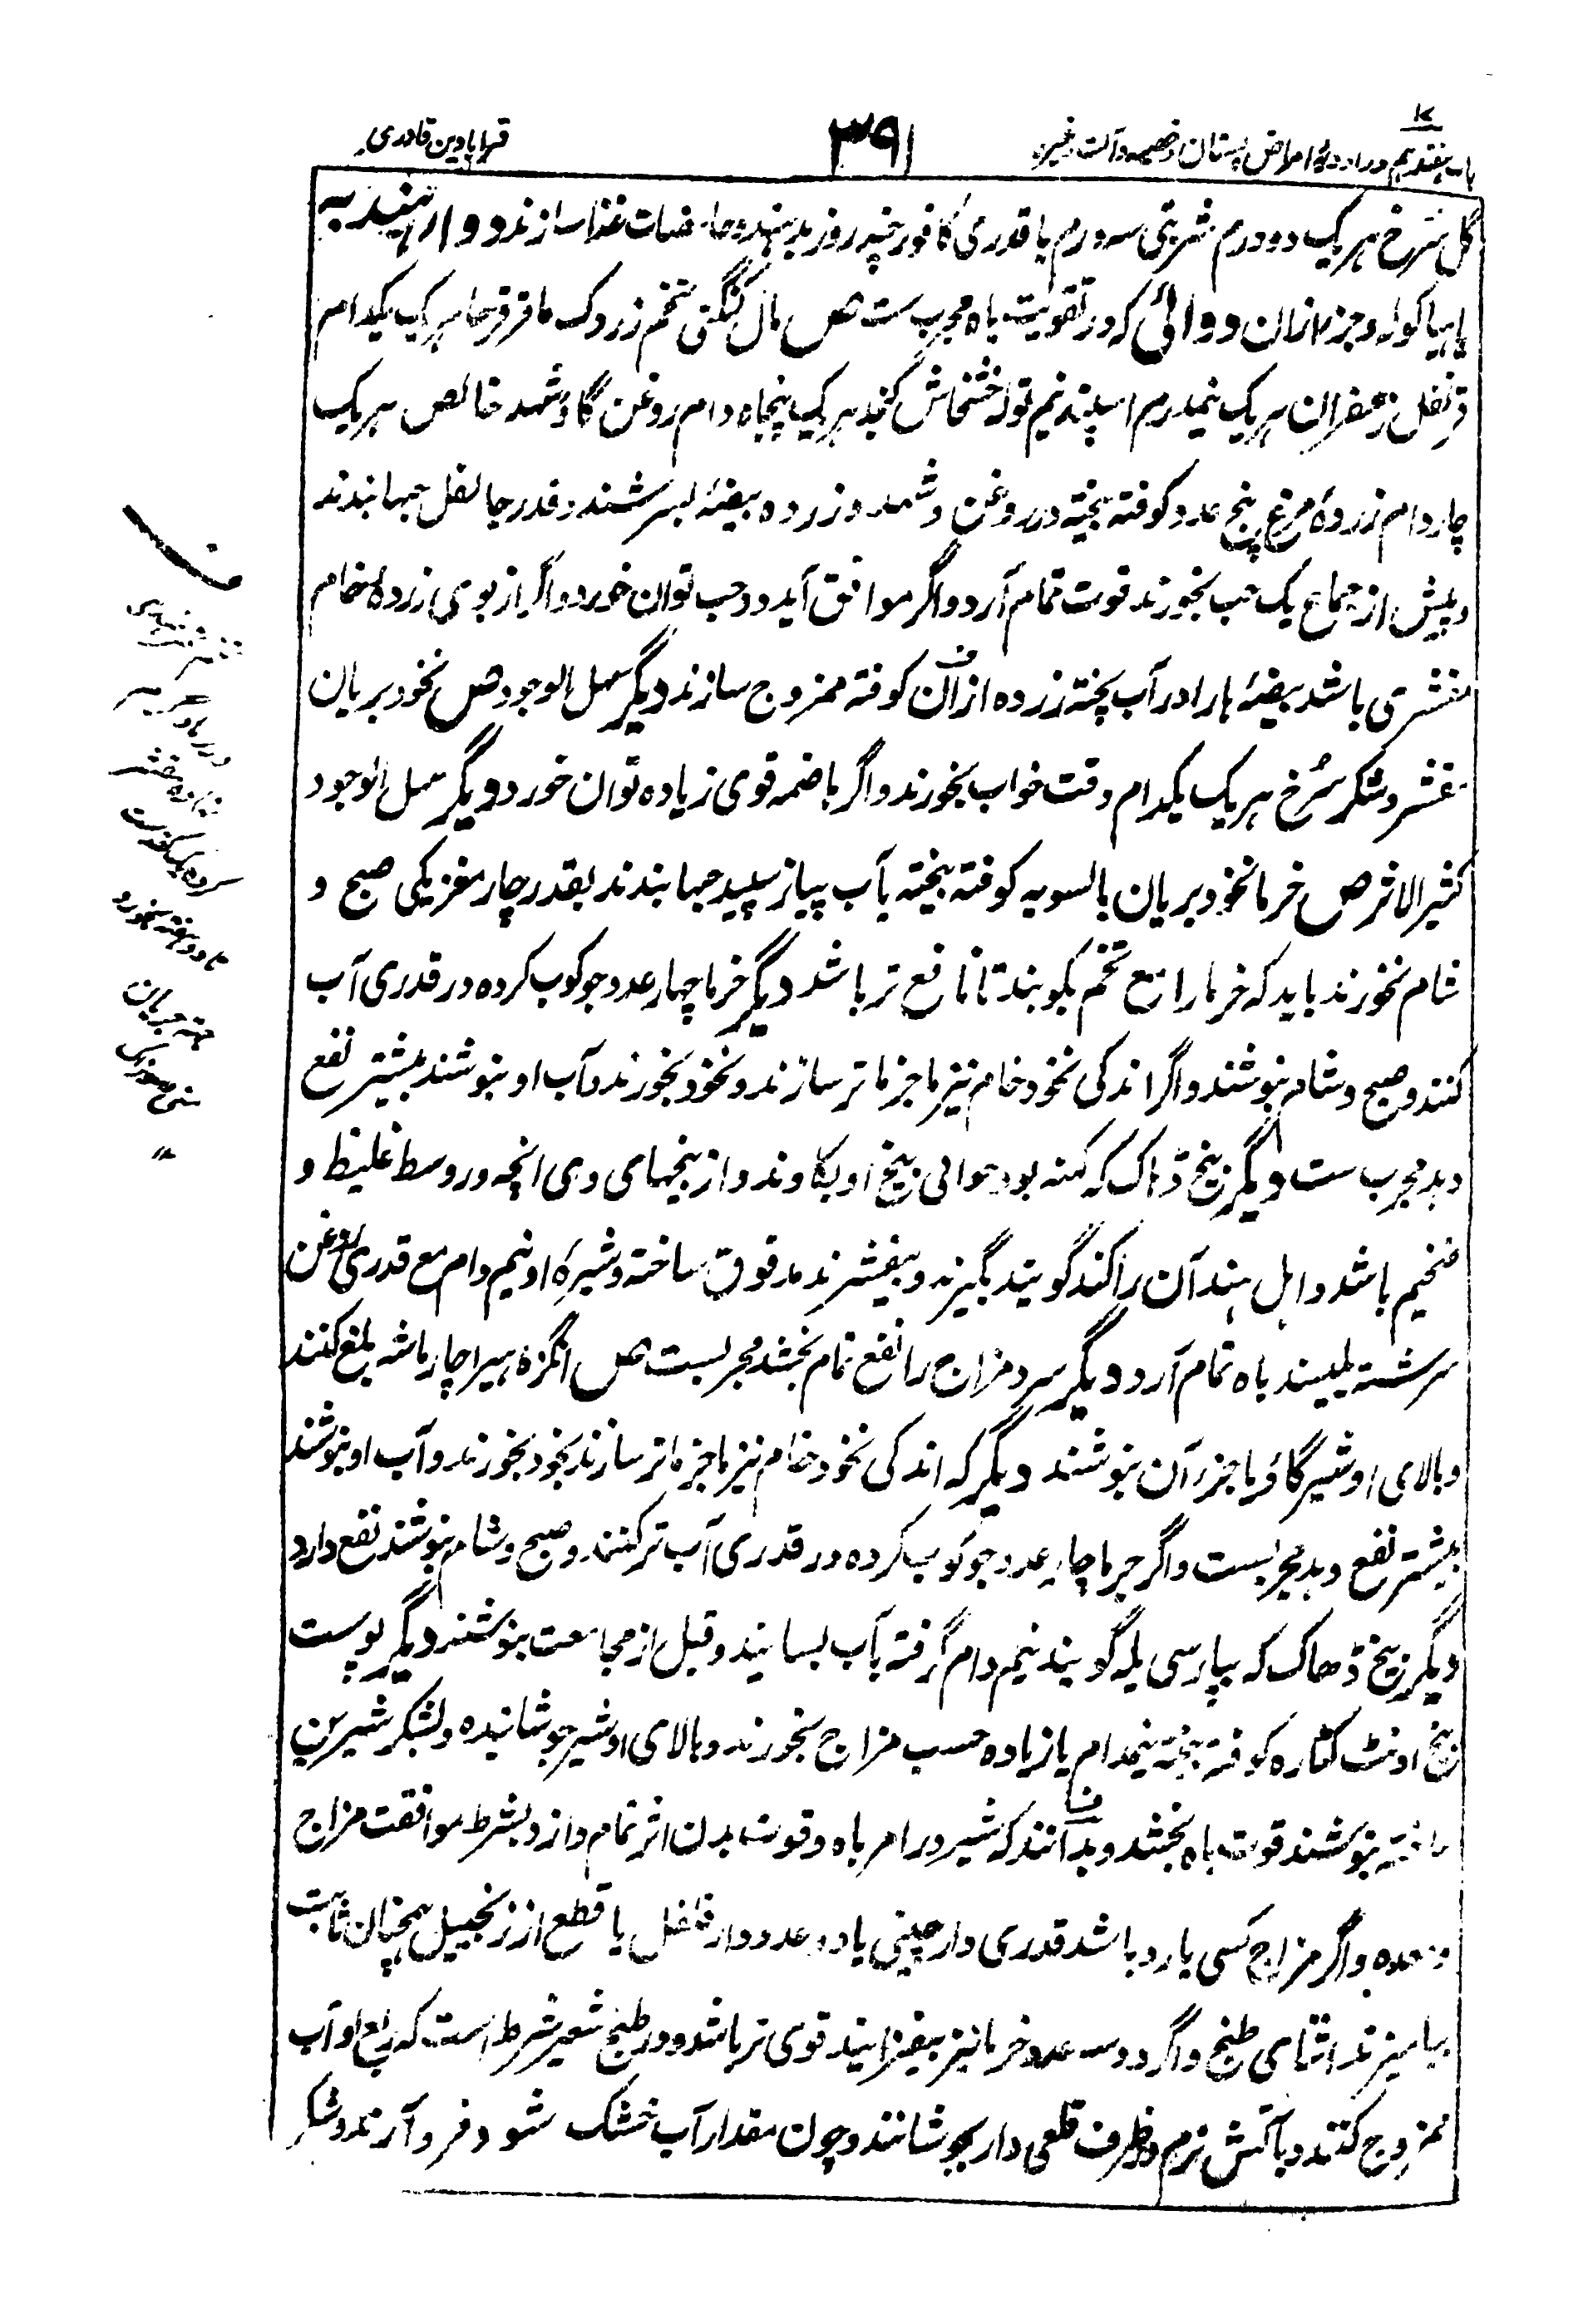 باب هفتدهم در ادویهٔ امراض پستان و خصیه و آلت وغیره
۳۹۱
قرابادین قادری
گل سرخ هر یک دو درم شربتی سه درم با قدری کافور چند روز بدهند و حامضات غذا سازند دواء هندیه
باهیا کوله و جز آن دوائی که در تقویت باه مجرب ست ص مال کنگنی تخم زردک عاقرقرحا هر یک یکدام
قرنفل زعفران هر یک نیمدرم اسپند نیم توله خشخاش کنجد هر یک پنجاه دام روغن گاؤ شهد خالص هر یک
چار دام زردهٔ مرغ پنج عدد کوفته بیخته در روغن و شهد و زرده بیضه بسرشند و قدر جائفل حبها بندند
و پیش از جماع یک حب بخورند قوت تمام آرد و اگر موافق آید دو حب توان خورد و اگر از بوی زردهٔ خام
متنفری باشد بیضه ها را در آب پخته زرده ازان کوفته ممزوج سازند دیگر سهل الوجود ص نخود بریان
مقشر و شکر سرخ هر یک یکدام وقت خواب بخورند و اگر هاضمه قوی زیاده توان خورد دیگر سهل الوجود
کثیر الاثر ص خرما نخود بریان بالسویه کوفته بیخته بآب پیاز سپید حبها بندند بقدر چار مغز یکی صبح و
شام بخورند باید که خرما را مع تخم بکوبند تا نافع تر باشد دیگر خرما چهار عدد جوکوب کرده در قدری آب
کنند و صبح و شام بنوشند و اگر اندکی نخود خام نیز با خرما تر سازند و نخود بخورند و آب او بنوشند بیشتر نفع
دهد مجرب ست دیگر بیخ ڈهاک که کهنه بود حوالی بیخ او بکاوند و از بیخهای وی انچه در وسط غلیظ و
ضخیم باشد و اهل هند آن را کند گویند بگیرند و بیفشرند مدقوق ساخته و شیره او نیم دام مع قدری روغن
سرشته بلیسند باه تمام آرد دیگر سرد مزاج را نفع تمام بخشد مجربست ص انگزه هیرا چار ماشه بلع کنند
و بالای او شیر گاؤ یا جز آن بنوشند دیگر که اندکی نخود خام نیز با خرما تر سازند نخود بخورند و آب او بنوشند
بیشتر نفع دهد مجربست و اگر خرما چار عدد جوکوب کرده در قدری آب تر کنند و صبح و شام بنوشند نفع دارد
دیگر بیخ ڈهاک که بپارسی پله گویند نیم دام گرفته بآب بسایند و قبل از مجامعت بنوشند دیگر پوست
بیخ اونٹ کٹاره کوفته بیخته نیمدام یا زیاده حسب مزاج بخورند و بالای او شیر جوشانیده و بشکر شیرین
ساخته بنوشند قوت باه بخشد و بدانند که شیر در امر باه و قوت بدن اثر تمام دارد بشرط موافقت مزاج
و معده و اگر مزاج کسی بارد باشد قدری دارچینی یا دو عدد دارفلفل یا قطع از زنجبیل همچنان ثابت
بیامیزند اثنای طبخ و اگر دو سه عدد خرما نیز بیفزایند قوی تر باشد و در طبخ شیر شرط است که ربع او آب
ممزوج کنند و بآتش نرم در ظرف قلعی دار بجوشانند و چون مقدار آب خشک شود فرو آرند و شکر